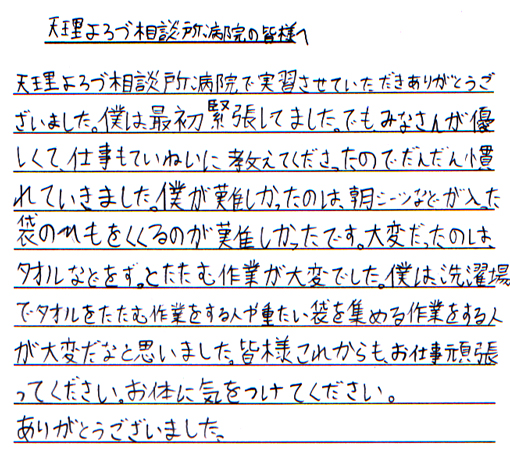 天理よろづ相談所病院の皆様へ
天理よろづ相談所病院で実習させていただきありがとうご
ざいました。僕は最初緊張してました。でもみなさんが優
しくて、仕事もていねいに教えてくださったのでだんだん慣
れていきました。僕が難しかったのは、朝シーツなどが入った
袋のひもをくくるのが難しかったです。大変だったのは、
タオルなどをずっとたたむ作業が大変でした。僕は、洗濯場
でタオルをたたむ作業をする人や重たい袋を集める作業をする人
が大変だなと思いました。皆様これからも、お仕事頑張
ってください。お体に気をつけてください。
ありがとうございました。